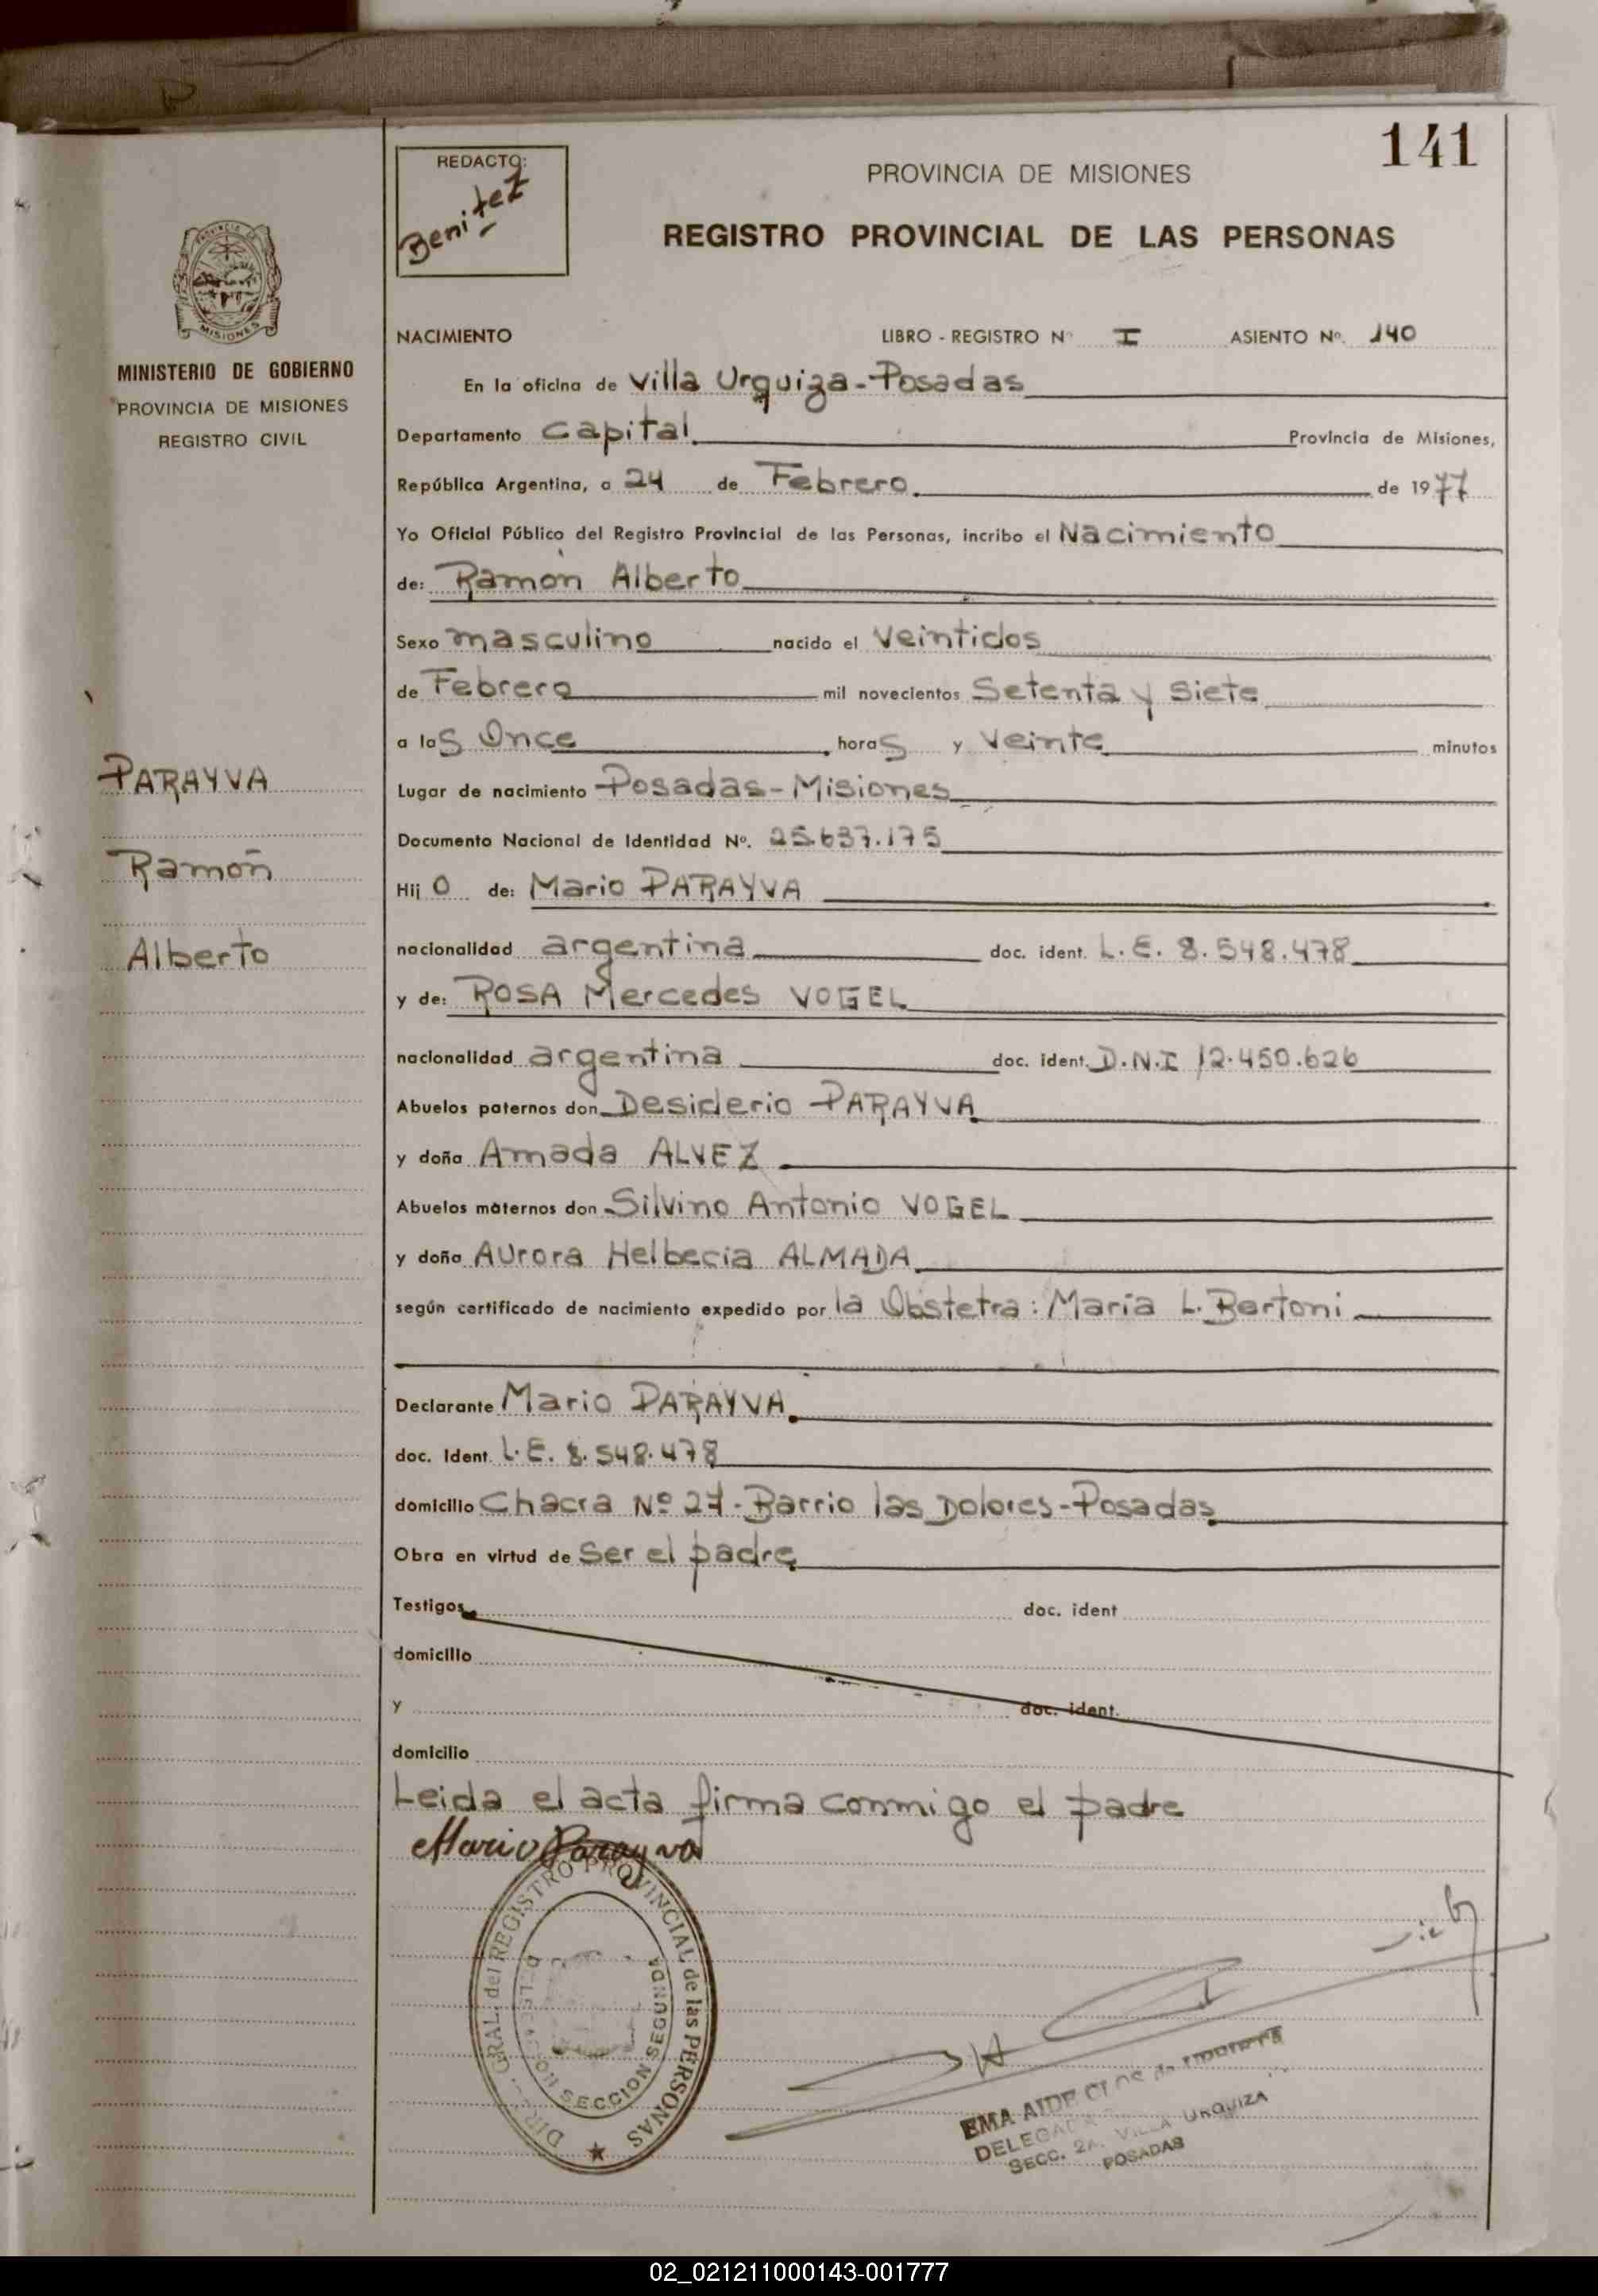 141
REDACTO:
Benitez
PROVINCIA DE MISIONES
REGISTRO PROVINCIAL DE LAS PERSONAS
MISIONES
MINISTERIO DE GOBIERNO
PROVINCIA DE MISIONES
REGISTRO CIVIL
PARAYVA
Ramón
Alberto
NACIMIENTO LIBRO - REGISTRO Nº I ASIENTO Nº. 140
En la oficina de Villa Urquiza - Posadas
Departamento Capital Provincia de Misiones,
República Argentina, a 24 de Febrero de 1977
Yo Oficial Público del Registro Provincial de las Personas, incribo el Nacimiento
de: Ramón Alberto
Sexo masculino nacido el Veintidos
de Febrero mil novecientos Setenta y Siete
a las Once horas y Veinte minutos
Lugar de nacimiento Posadas - Misiones
Documento Nacional de Identidad Nº. 25.637.175
Hijo de: Mario PARAYVA
nacionalidad argentina doc. ident. L.E. 8.548.478
y de: ROSA Mercedes VOGEL
nacionalidad argentina doc. ident. D.N.I 12.450.626
Abuelos paternos don Desiderio PARAYVA
y doña Amada ALVEZ
Abuelos maternos don Silvino Antonio VOGEL
y doña Aurora Helbecia ALMADA
según certificado de nacimiento expedido por la Obstetra: María L. Bertoni
Declarante Mario PARAYVA
doc. Ident. L.E. 8.548.478
domicilio Chacra Nº 27 - Barrio las Dolores - Posadas
Obra en virtud de Ser el padre
Testigos doc. ident
domicilio
y doc. ident.
domicilio
Leida el acta firma conmigo el padre
Mario Parayva
DIR. GRAL. del REGISTRO PROVINCIAL de las PERSONAS
DELEGACION SECCION SEGUNDA
EMA AIDE CLOS de
DELEGADA VILLA URQUIZA
SECC. 2A. POSADAS
02_021211000143-001777